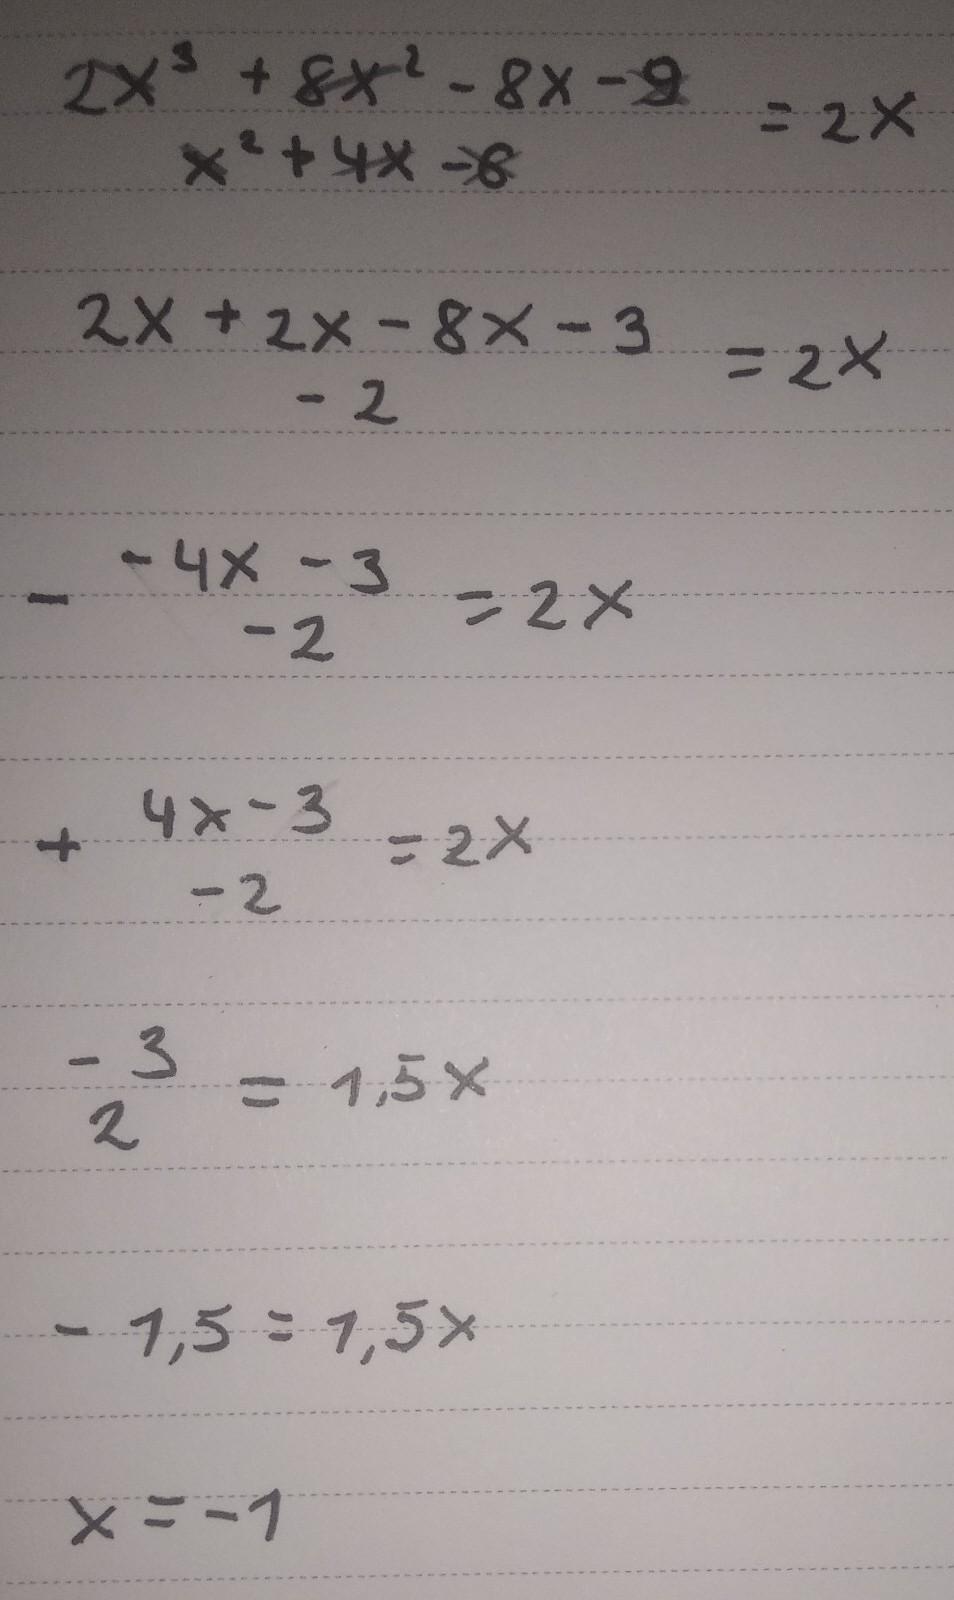 2x³ + 8x² - 8x - 9
x² + 4x - 6 = 2x
2x + 2x - 8x - 3
- 2 = 2x
- -4x - 3
-2 = 2x
+ 4x - 3
-2 = 2x
- 3
2 = 1,5x
- 1,5 = 1,5x
x = -1